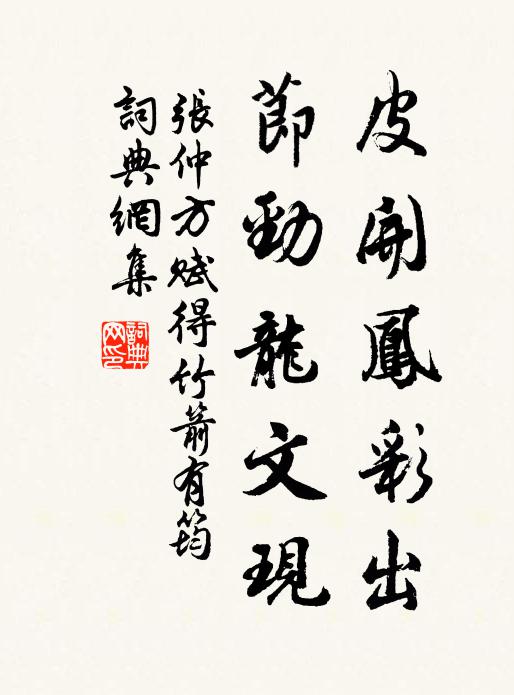 皮開鳳彩出
節勁龍文現
張仲方賦得竹箭有筠
詞典網集
詞典網印